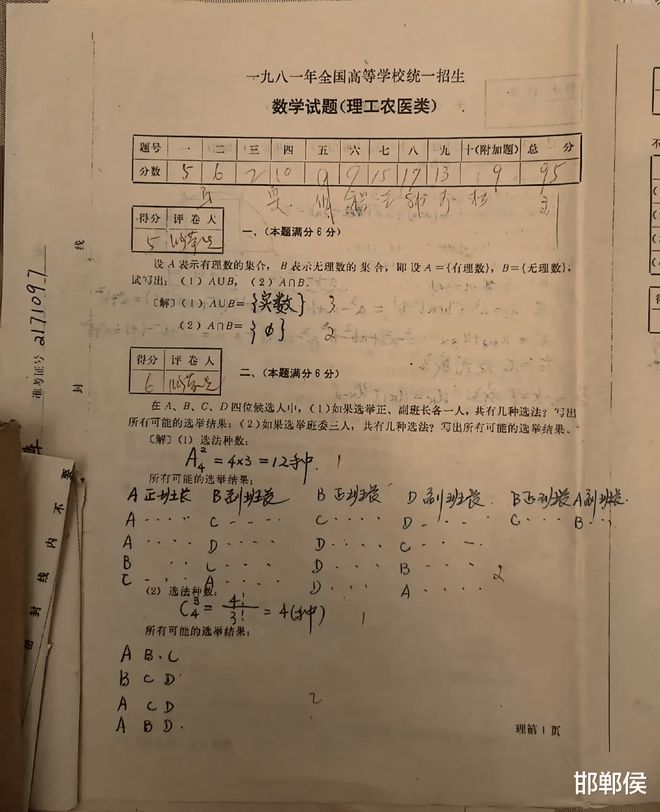 一九八一年全国高等学校统一招生
数学试题(理工农医类)
题号 一 二 三 四 五 六 七 八 九 十(附加题) 总 分
分数 5 6 2 10 9 7 15 17 13 9 95
得分 评卷人
5
一、(本题满分6分)
设A表示有理数的集合，B表示无理数的集合，即设A={有理数}，B={无理数}，
试写出：(1)A∪B，(2)A∩B.
〔解〕(1)A∪B= {实数} 3
(2)A∩B= {φ} 2
得分 评卷人
6
二、(本题满分6分)
在A、B、C、D四位候选人中，(1)如果选举正、副班长各一人，共有几种选法？写出
所有可能的选举结果；(2)如果选举班委三人，共有几种选法？写出所有可能的选举结果。
〔解〕(1)选法种数：
A²₄=4×3=12种. 1
所有可能的选举结果：
A正班长 B副班长 B正班长 D副班长 B正班长 A副班长.
A ···· C ···· C ···· D ···· C ··· B ···
A ···· D ···· D ···· C ····
B ···· C ···· D ···· B ···· 2
C ···· A ···· D ···· A ····
(2)选法种数：
C³₄=4!/3!=4(种) 1
所有可能的选举结果：
A B.C
B C D
A C D 2
A B D.
理第1页
准考证号 2171097
封 线
密封线内不要
邯郸侯